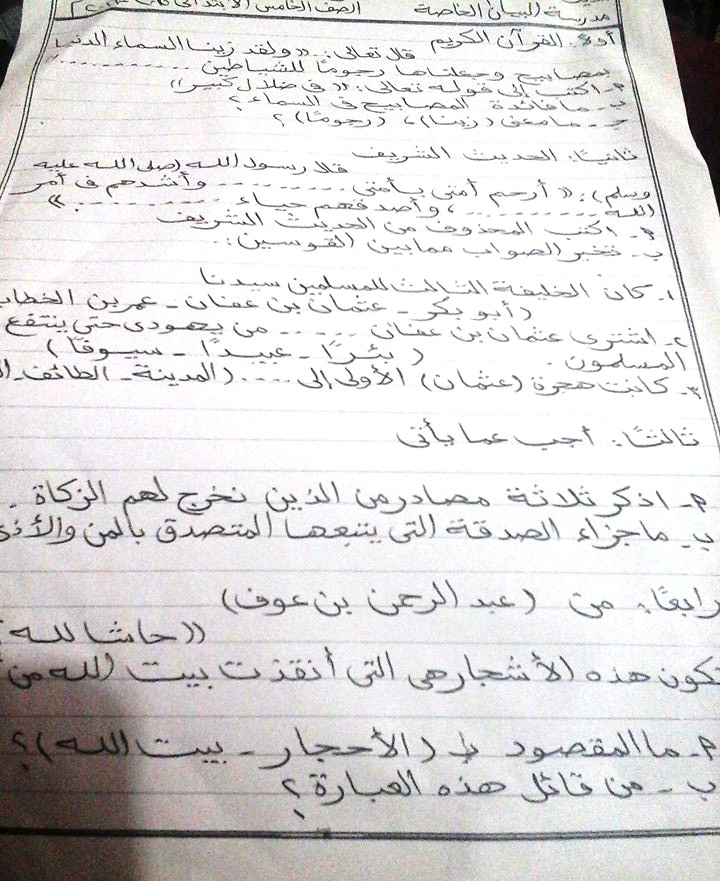 مدرسة البيان الخاصة الصف الخامس الابتدائى
أولاً: القرآن الكريم
قلا تعالى: "ولقد زينا السماء الدنيا
بمصابيح وجعلناها رجومًا للشياطين ..........
أ- اكتب إلى قوله تعالى: "فى ضلال كبير"
ب- ما فائدة المصابيح فى السماء؟
جـ- ما معنى (زينا)، (رجومًا)؟
ثانيًا: الحديث الشريف
قلا رسول الله (صلى الله عليه
وسلم): "أرحم أمتى بأمتى .......... وأشدهم فى أمر
الله ..........، وأصدقهم حياء .........."
أ- اكتب المحذوف من الحديث الشريف
ب- تخير الصواب مما بين القوسين:
١- كان الخليفة الثالث للمسلمين سيدنا
(أبو بكر - عثمان بن عفان - عمر بن الخطاب
٢- اشترى عثمان بن عفان ..... من يهودى حتى ينتفع
المسلمون. (بئرًا - عبيدًا - سيوفًا)
٣- كانت هجرة (عثمان) الأولى إلى .... (المدينة - الطائف -
ثالثًا: أجب عما يأتى
أ- اذكر ثلاثة مصادر من الذين نخرج لهم الزكاة.
ب- ما جزاء الصدقة التى يتبعها المتصدق بالمن والأذى
رابعًا: من (عبد الرحمن بن عوف)
"حاشا لله
تكون هذه الأشجار هى التى أنقذت بيت الله من
أ- ما المقصود بـ (الأحجار - بيت الله)؟
ب- من قائل هذه العبارة؟